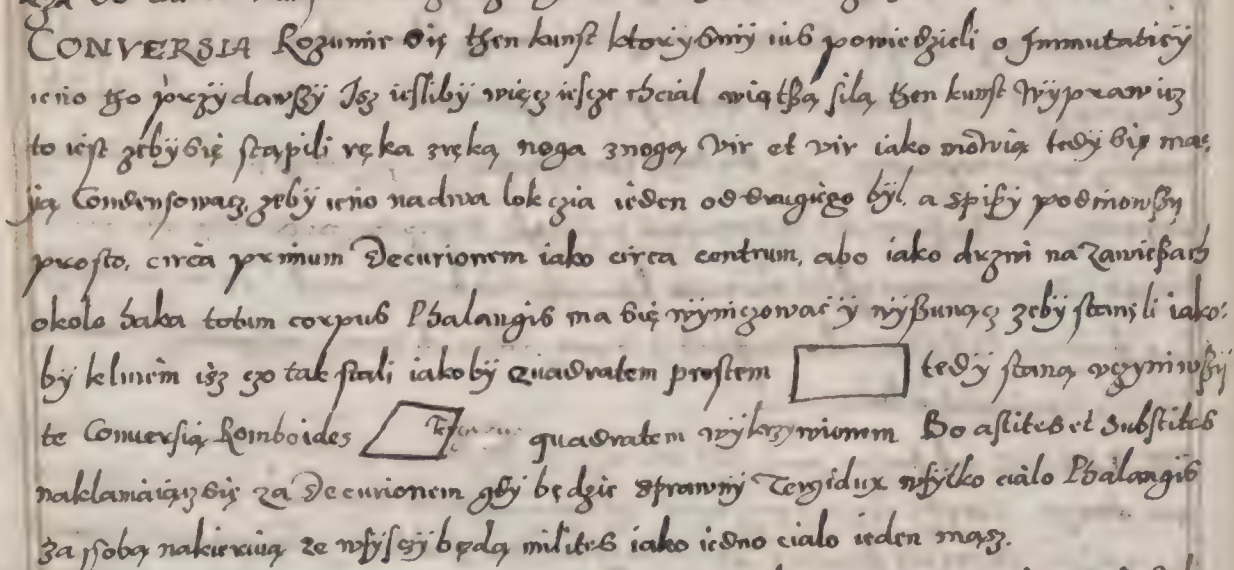 CONVERSIA Rozumie się then kunst ktorysmy ius powiedzieli o Immutaticÿ
ieno tho prziÿdawszÿ Isz ieslibÿ więcz iescze chcial więtszą siłą then kunst wÿprawicz
to iest zebÿ się stąpili ręka zręką noga znogą vir et vir iako mówią tedÿ się ma:
ią Condensowacz, zebÿ ieno nadwa lokczia ieden od drugiego bÿl, a spissÿ podniowszÿ
prosto, circa primum Decurionem iako circa centrum, abo iako drzwi na zawiessach
około haka totum corpus Phalangis ma się wÿniczowac ÿ wÿssunącz zebÿ stanęli iako:
bÿ klinem isz czo tak stali iakobÿ quadratem prostem tedÿ staną uczyniwszÿ
te Conuersią Romboides quadratem wÿkrzÿwionem Bo astites et substites
naklaniaiącz się za Decurionem gdÿ będzie sprawnÿ Tergidux wssÿtko cialo Phalangis
za ssobą nakieruią ze wssÿsczÿ będą milites iako iedno cialo ieden mąsz.